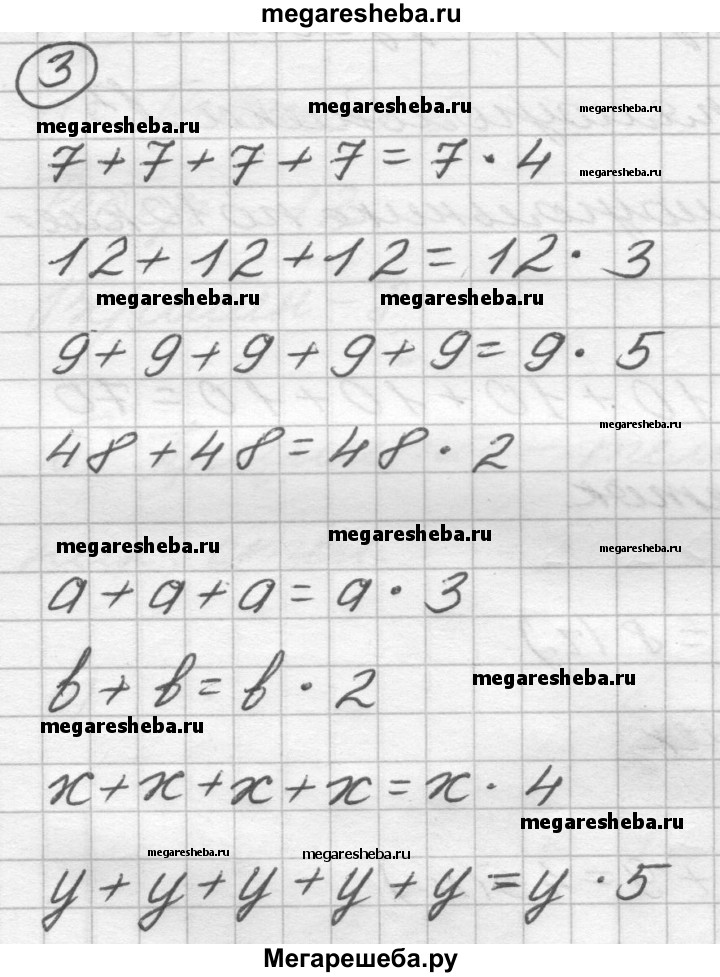 megaresheba.ru
3
megaresheba.ru megaresheba.ru
megaresheba.ru
7 + 7 + 7 + 7 = 7 · 4
megaresheba.ru
12 + 12 + 12 = 12 · 3
megaresheba.ru megaresheba.ru
9 + 9 + 9 + 9 + 9 = 9 · 5
megaresheba.ru
48 + 48 = 48 · 2
megaresheba.ru
megaresheba.ru megaresheba.ru
a + a + a = a · 3
b + b = b · 2
megaresheba.ru
megaresheba.ru
x + x + x + x = x · 4
megaresheba.ru
megaresheba.ru megaresheba.ru
y + y + y + y + y = y · 5
Мегарешеба.ру